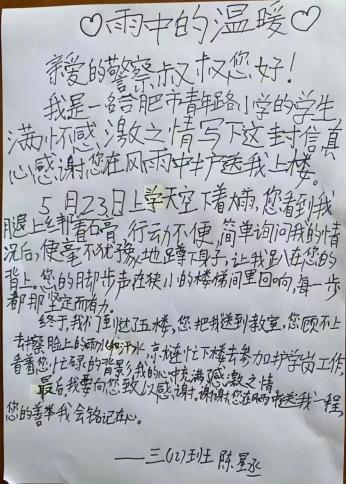 ♡雨中的温暖♡
亲爱的警察叔叔您好！
我是一名合肥市青年路小学的学生，
满怀感激之情写下这封信真
心感谢您在风雨中护送我上楼。
5月23日上学天空下着大雨，您看到我
腿上绑着石膏，行动不便，简单询问我的情
况后，便毫不犹豫地蹲下身子，让我趴在您的
背上。您的脚步声在狭小的楼梯间里回响，每一步
都那坚定而有力。
终于，我们到达了五楼，您把我送到教室，您顾不上
去擦脸上的雨水和汗水，连忙下楼去参加护学岗工作，
看着您忙碌的背影，我的心中充满感激之情。
最后，我要向您致以感谢。谢谢您在风雨送我一程，
您的善举我会铭记在心。
——三(12)班 陈星丞